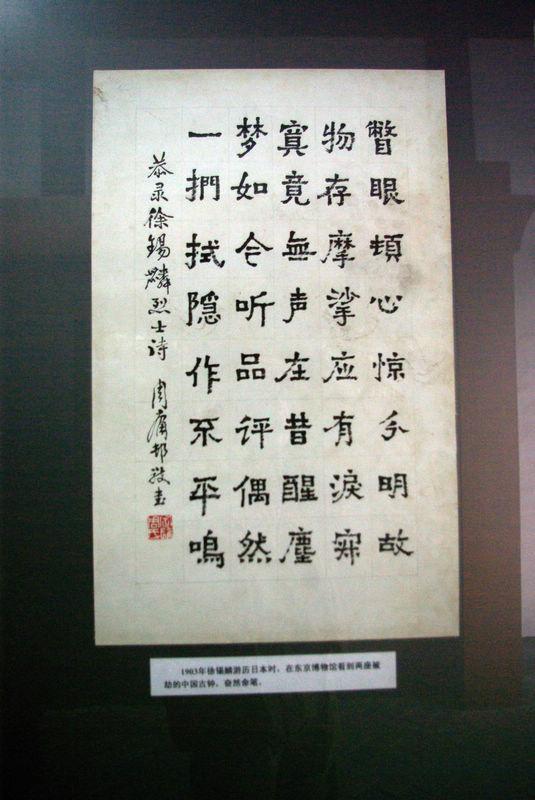 瞥眼頓心惊分明故
物存摩挲应有淚寂
寞竟無声在昔醒塵
梦如今听品评偶然
一捫拭隐作不平鳴
恭录徐锡麟烈士诗 周庸邦敬书
1903年徐锡麟游历日本时，在东京博物馆看到两座被
劫的中国古钟，奋然命笔。